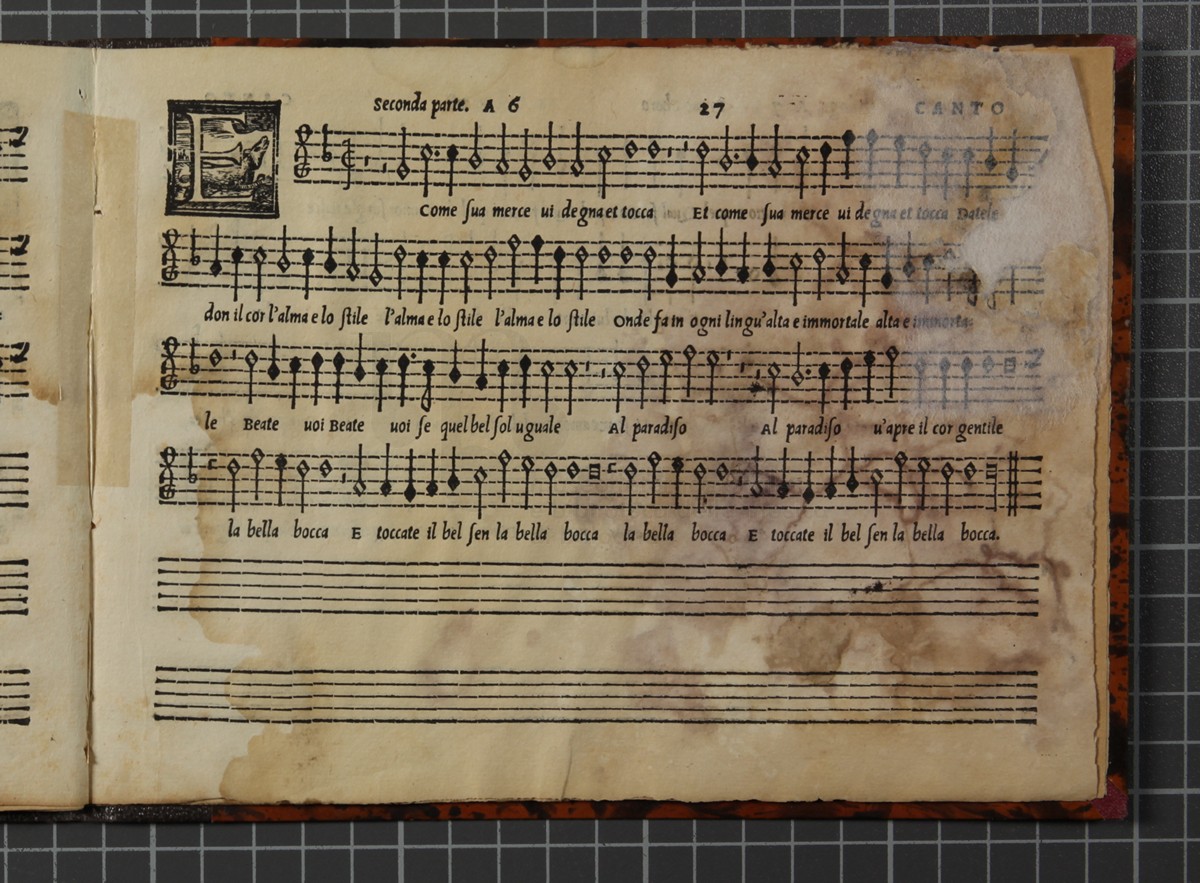 Seconda parte. A 6 27 CANTO
E
Come ſua merce ui degna et tocca Et come ſua merce ui degna et tocca Datele
don il cor l'alma e lo ſtile l'alma e lo ſtile l'alma e lo ſtile Onde fa in ogni lingu'alta e immortale alta e immorta-
le Beate uoi Beate uoi ſe quel bel ſol uguale Al paradiſo Al paradiſo u'apre il cor gentile
la bella bocca E toccate il bel ſen la bella bocca la bella bocca E toccate il bel ſen la bella bocca.